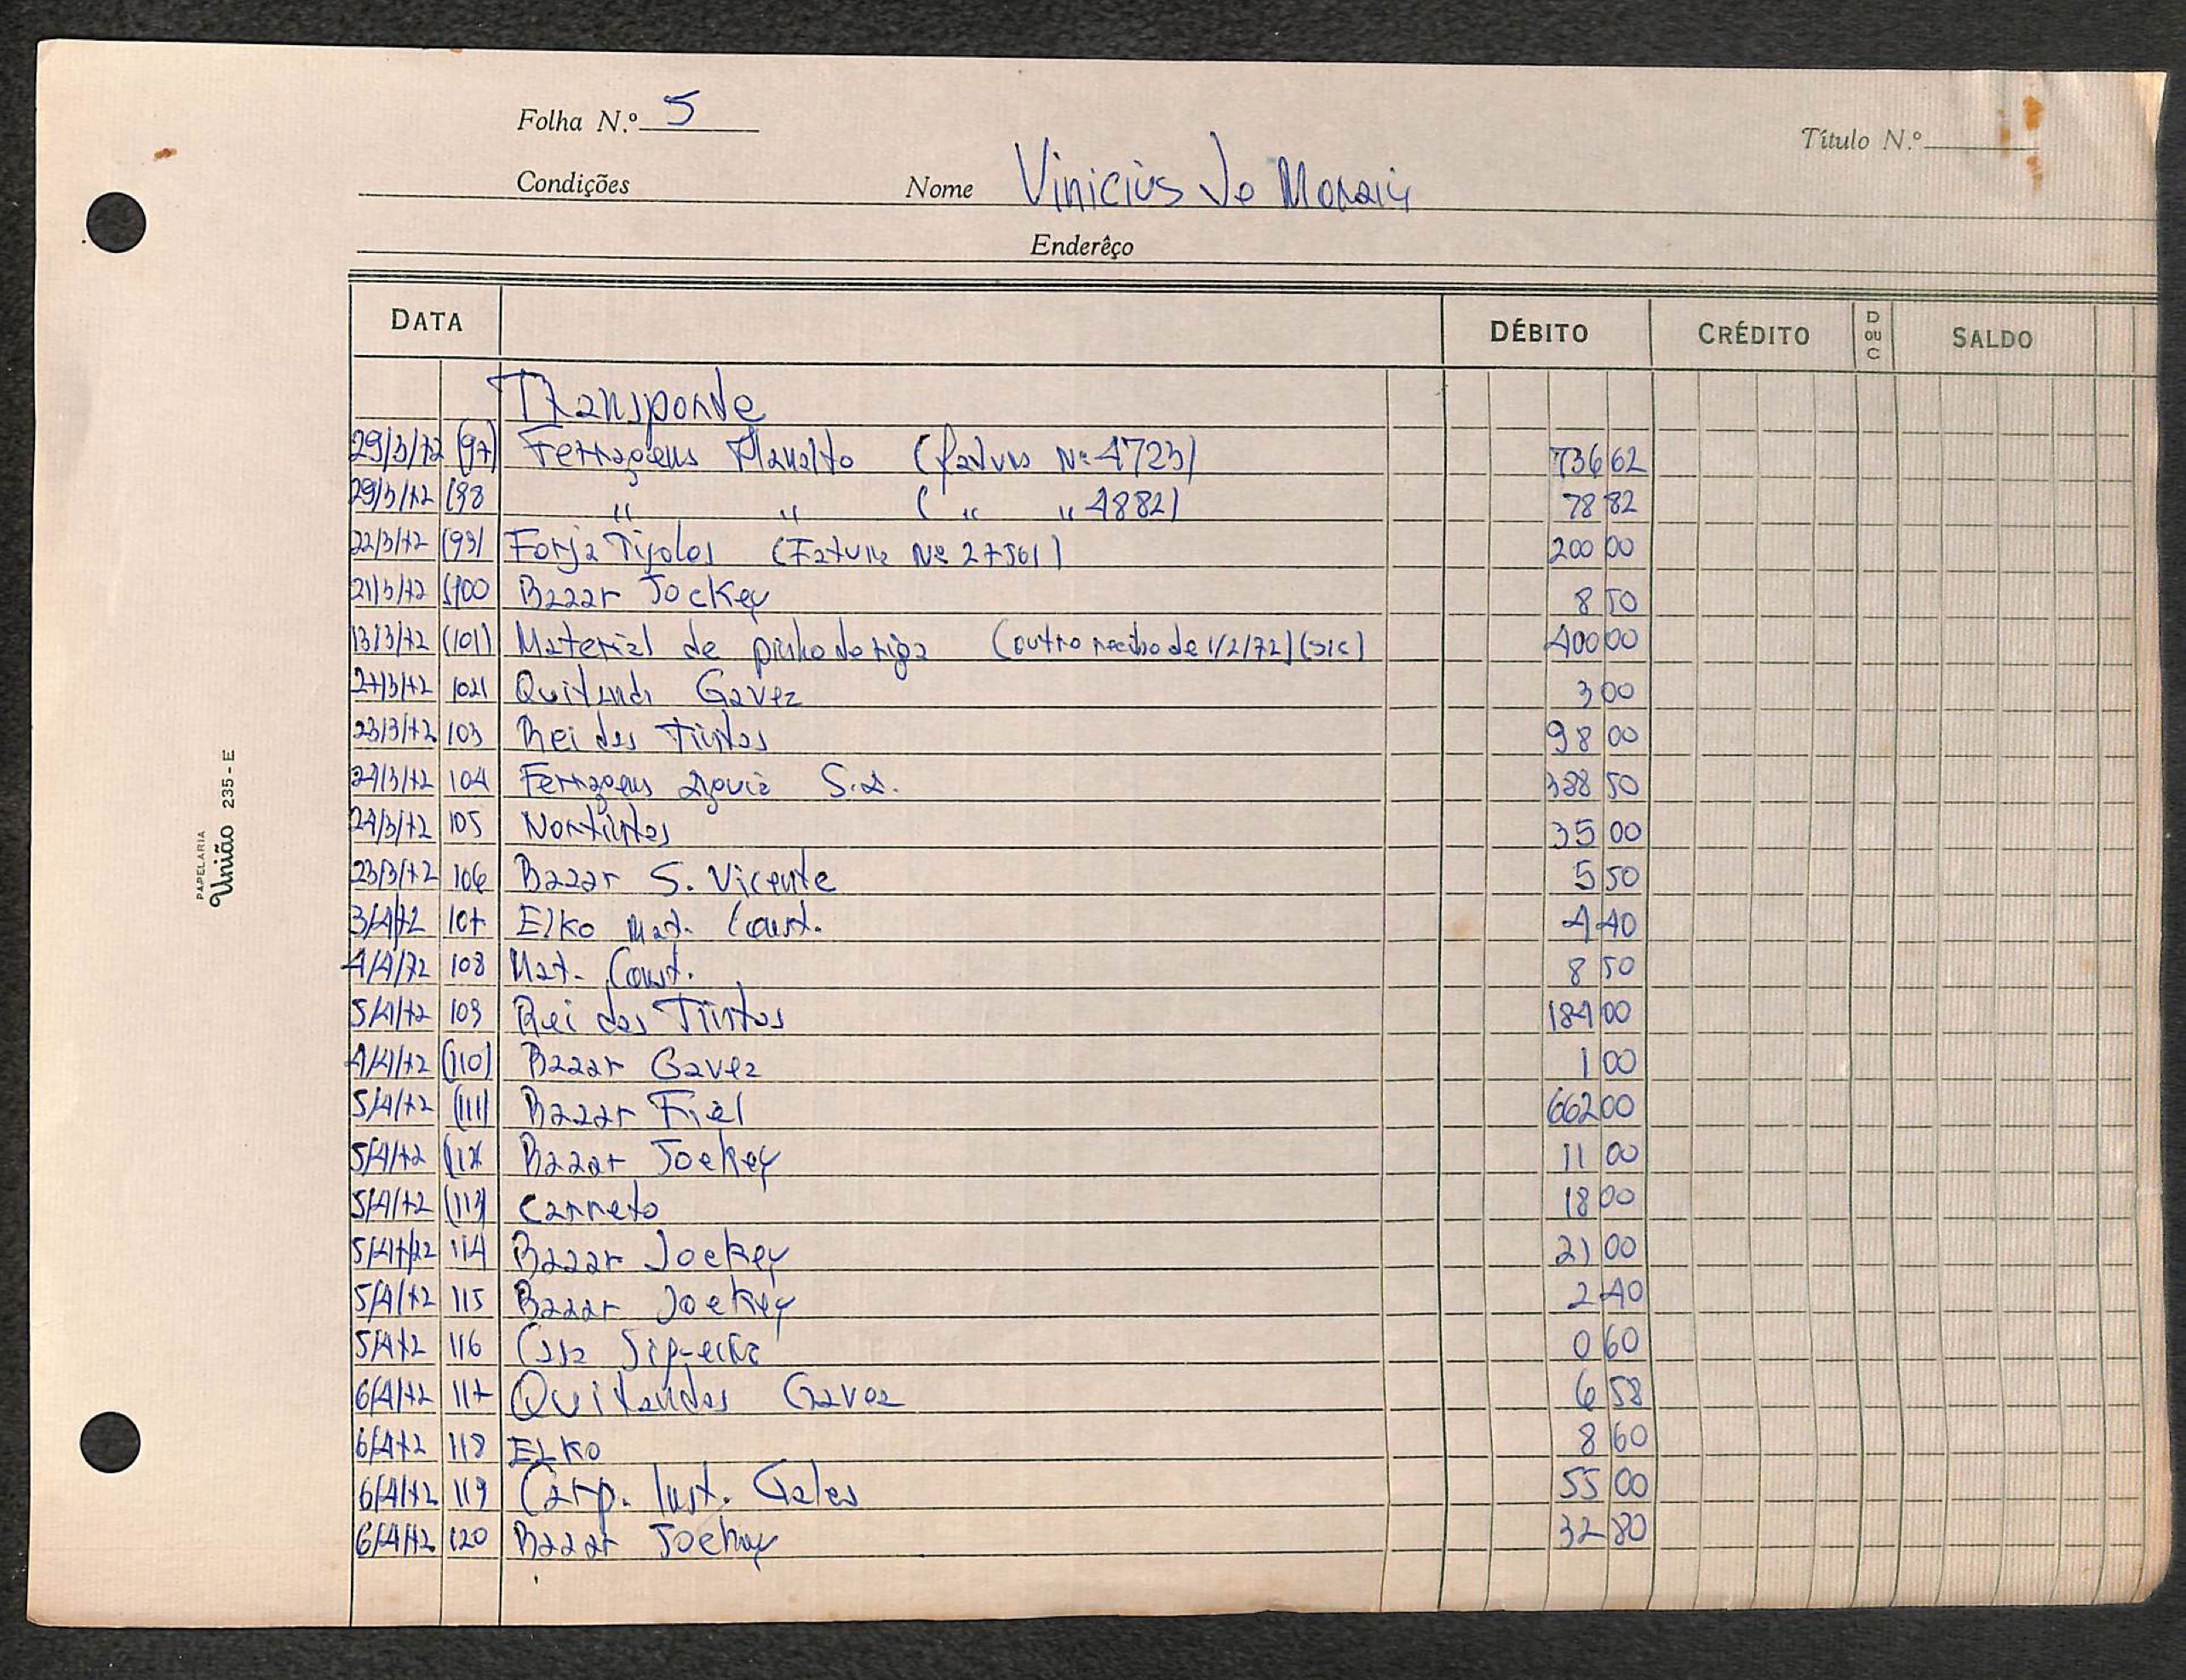 Folha N.º 5
Título N.º
Condições Nome Vinicius de Morais
Enderêço
DATA DÉBITO CRÉDITO D OU C SALDO
Transporte
29/3/72 (97) Ferragens Planalto (fatura Nº 4723) 736 62
29/3/72 (98 " " ( " " 4882) 78 82
22/3/72 (99) Forja Tijolos (Fatura Nº 27561) 200 00
21/3/72 (100 Bazar Jockey 8 50
13/3/72 (101) Material de pinho de riga (outro recibo de 1/2/72) (sic) 400 00
27/3/72 102) Quitanda Gavea 3 00
23/3/72 103 Rei das Tintas 98 00
27/3/72 104 Ferragens S.A. 388 50
24/3/72 105 Nortintas 35 00
23/3/72 106 Bazar S. Vicente 5 50
3/4/72 107 Elko Mat. Const. 4 40
4/4/72 108 Mat. Const. 8 50
5/4/72 109 Rei das Tintas 184 00
4/4/72 (110) Bazar Gavea 1 00
5/4/72 (111) Bazar Fiel 662 00
5/4/72 (112 Bazar Jockey 11 00
5/4/72 (113) Carreto 18 00
5/4/72 114 Bazar Jockey 21 00
5/4/72 115 Bazar Jockey 2 40
5/4/72 116 Casa Siqueira 0 60
6/4/72 117 Quitandas Gavea 6 58
6/4/72 118 ELKO 8 60
6/4/72 119 Carp. Inst. Gales 55 00
6/4/72 120 Bazar Jockey 32 80
PAPELARIA
União 235-E